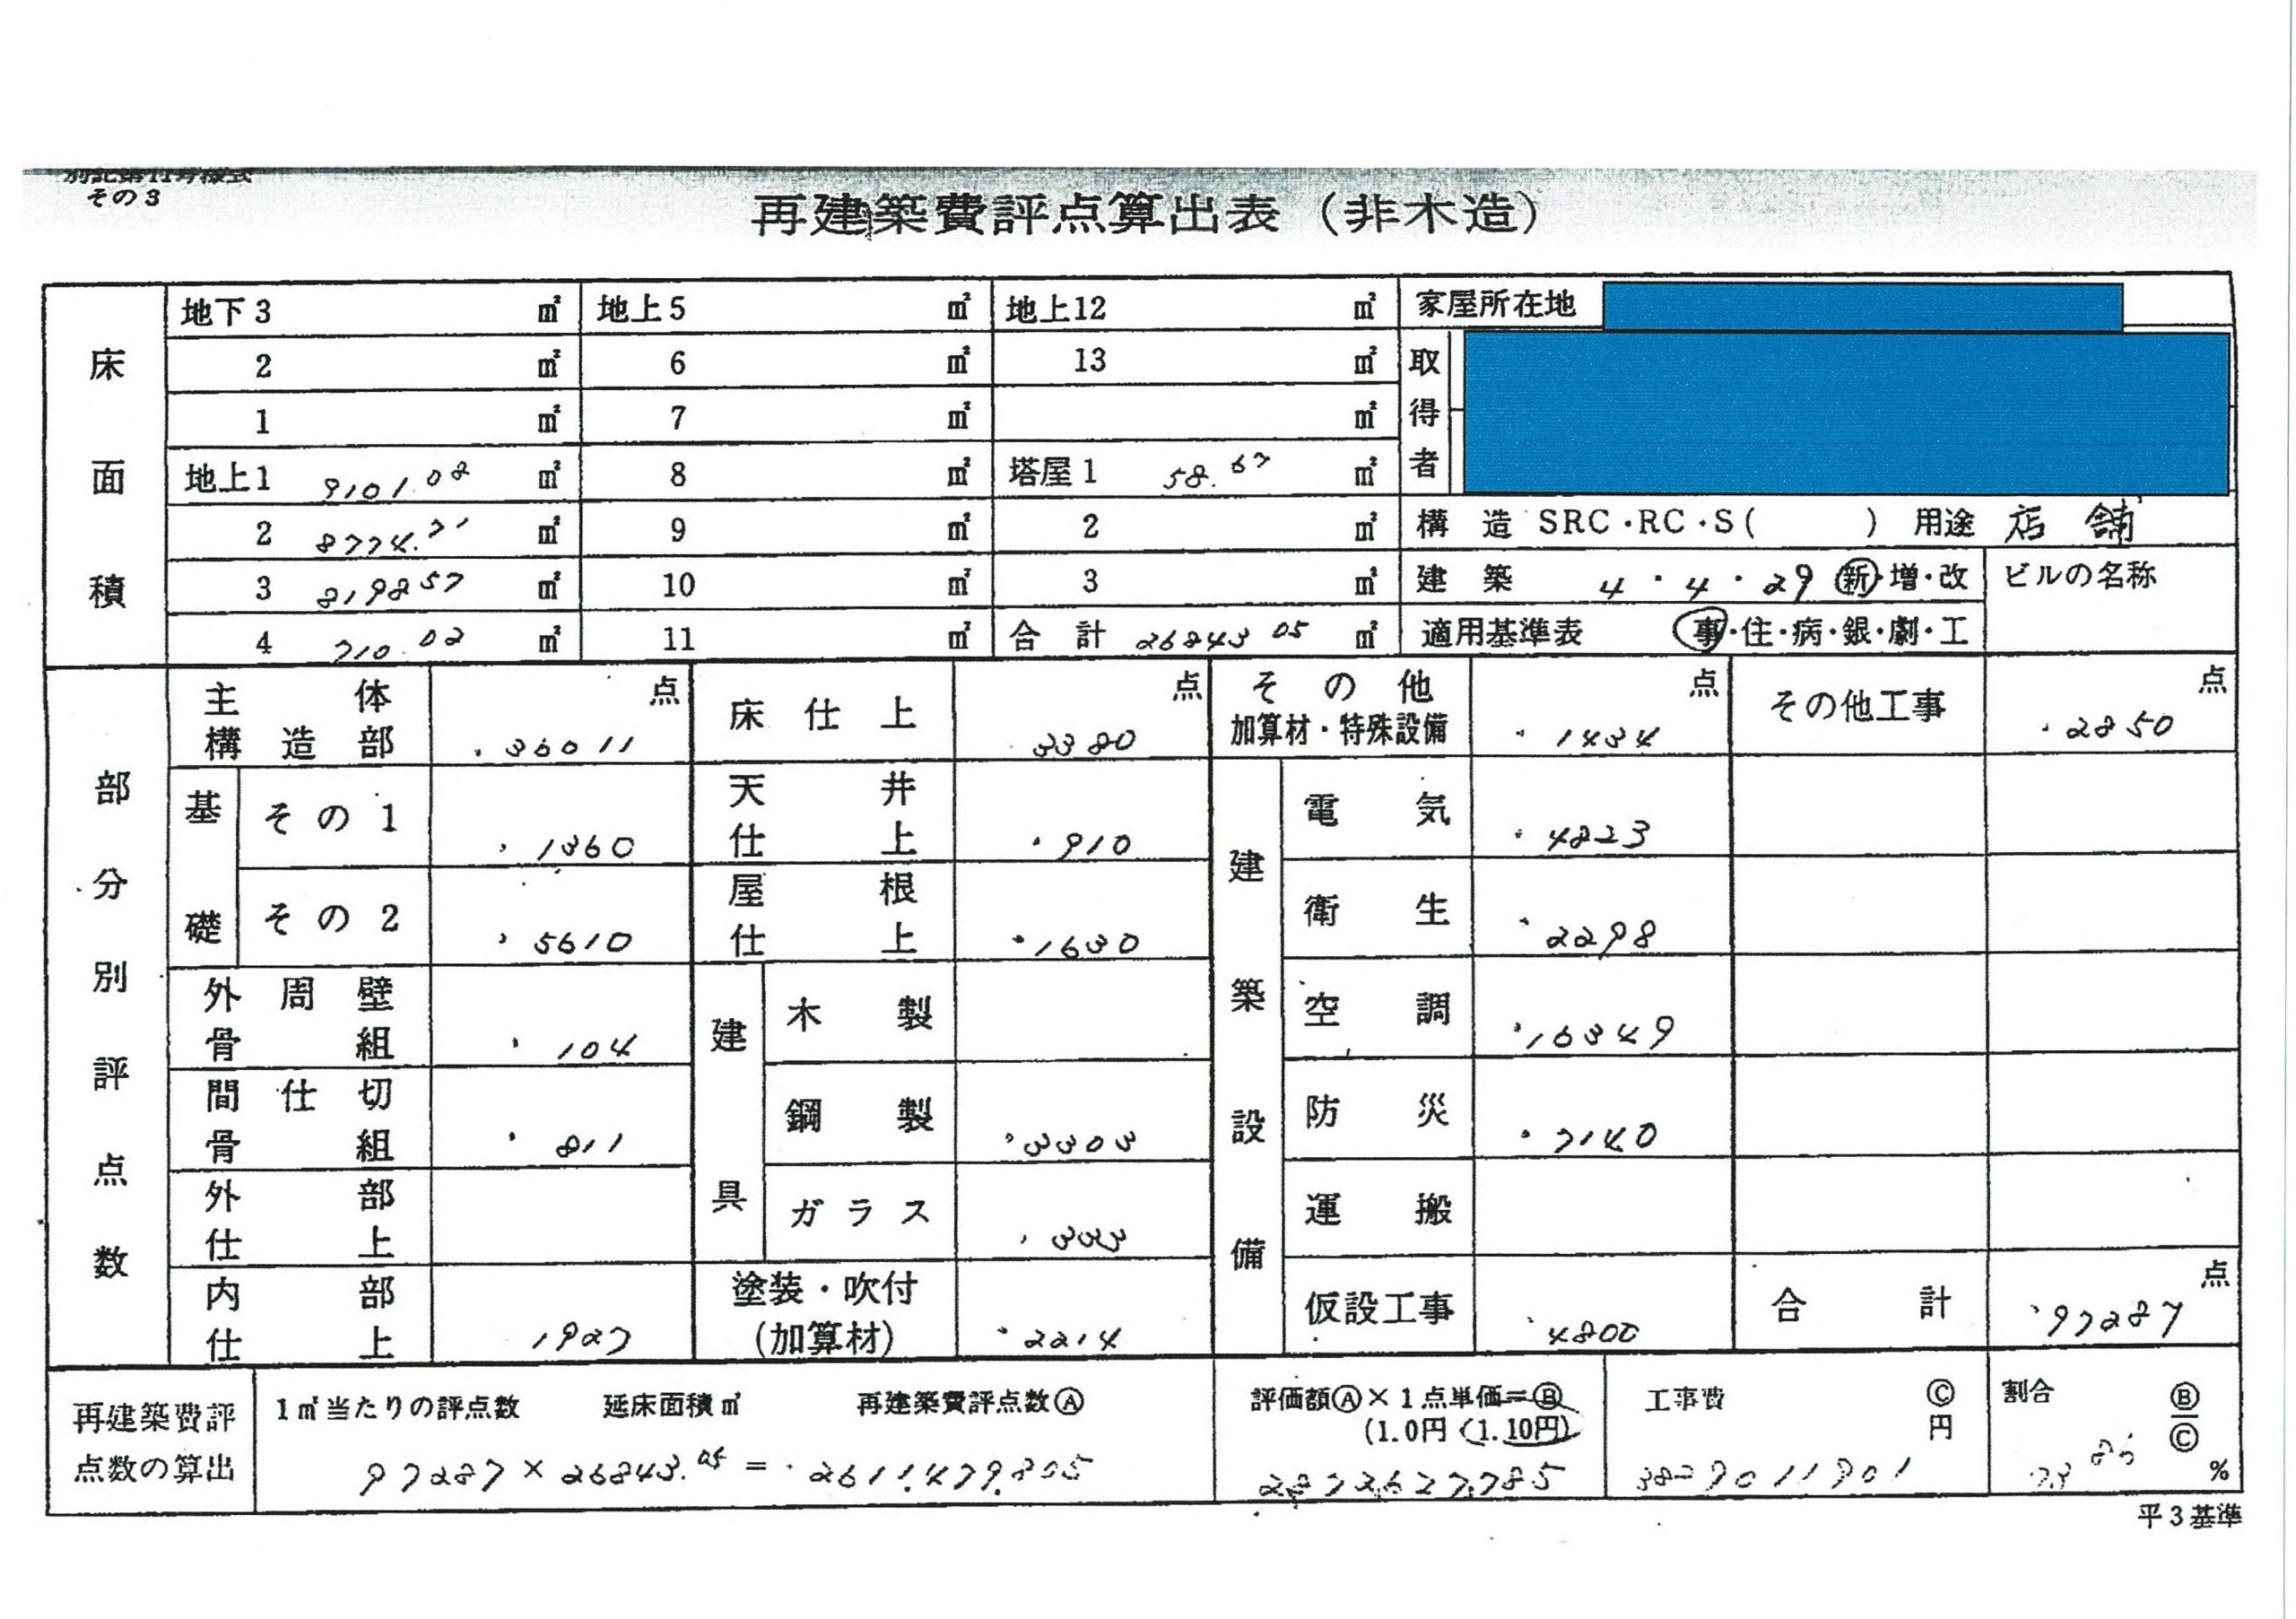 その3
再建築費評点算出表（非木造）
床面積
地下3 ㎡ 地上5 ㎡ 地上12 ㎡ 家屋所在地
2 ㎡ 6 ㎡ 13 ㎡ 取得者
1 ㎡ 7 ㎡ ㎡
地上1 9101.08 ㎡ 8 ㎡ 塔屋1 58.67 ㎡
2 8774.71 ㎡ 9 ㎡ 2 ㎡ 構造 SRC・RC・S( ) 用途 店舗
3 8198 57 ㎡ 10 ㎡ 3 ㎡ 建築 4・4・29 新・増・改 ビルの名称
4 710.02 ㎡ 11 ㎡ 合計 26843 05 ㎡ 適用基準表 事・住・病・銀・劇・工
部分別評点数
主体構造部 36011 点 床仕上 3380 点 その他加算材・特殊設備 1434 点 その他工事 2850 点
基礎 その1 1360 天井仕上 910 建築設備 電気 4823
その2 5610 屋根仕上 1630 衛生 2298
外周壁骨組 104 建具 木製 空調 16349
間仕切骨組 811 鋼製 3303 防災 7140
外部仕上 ガラス 333 運搬
内部仕上 1927 塗装・吹付(加算材) 2214 仮設工事 4800 合計 97287 点
再建築費評点数の算出
1㎡当たりの評点数 延床面積㎡ 再建築費評点数Ⓐ 評価額Ⓐ×1点単価=Ⓑ 工事費 Ⓒ 割合 Ⓑ/Ⓒ
(1.0円 (1.10円) 円
97287 × 26843.05 = 2611,479,805 2,872,627,785 3829011901 %
平3基準